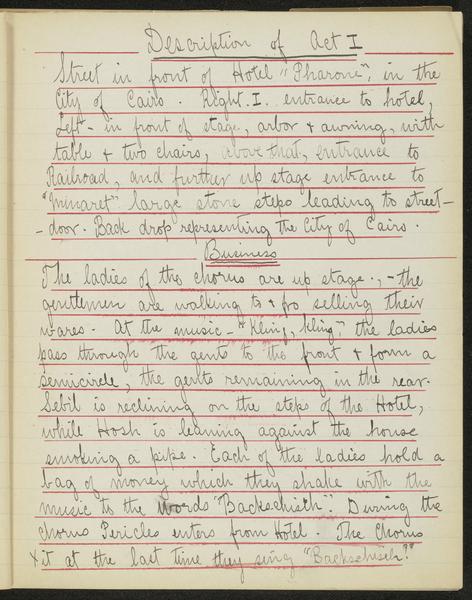 Description of Act I
Street in front of Hotel "Pharone", in the
City of Cairo. Right. I. entrance to hotel,
Left - in front of stage, arbor & awning, with
table & two chairs, above that, entrance to
Railroad, and further up stage entrance to
"Minaret" large stone steps leading to street-
-door. Back drop representing the City of Cairo.
Business
The ladies of the chorus are up stage., - the
gentlemen are walking to & fro selling their
wares. At the music - "Kling, kling", the ladies
pass through the gents to the front & form a
semicircle, the gents remaining in the rear.
Sebil is reclining on the steps of the Hotel,
while Hosh is leaning against the house
smoking a pipe. Each of the ladies hold a
bag of money which they shake with the
music to the words "Backschisch". During the
chorus Pericles enters from Hotel. The Chorus
xit at the last time they sing "Backschisch."